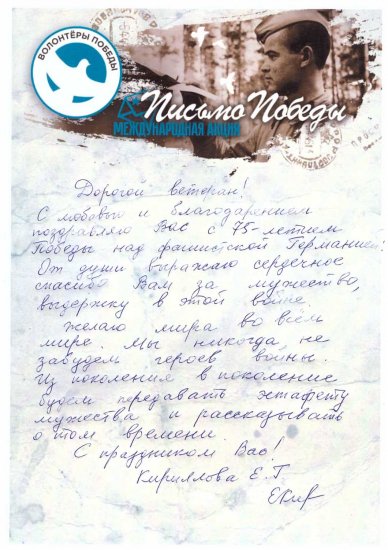 ВОЛОНТЁРЫ ПОБЕДЫ
Письмо Победы
МЕЖДУНАРОДНАЯ АКЦИЯ
Дорогой ветеран!
С любовью и благодарением
поздравляю Вас с 75-летием
Победы над фашистской Германией!
От души выражаю сердечное
спасибо Вам за мужество,
выдержку в этой войне.
Желаю мира во всём
мире. Мы никогда не
забудем героев войны.
Из поколения в поколение
будем передавать эстафету
мужества и рассказывать
о том времени.
С праздником Вас!
Кириллова Е.Г
ЕКир